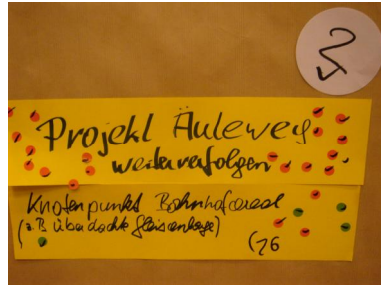 Projekt Äuleweg
weiterverfolgen
Knotenpunkt Bahnhofareal
(z.B. überdachte Gleisanlage)
(26